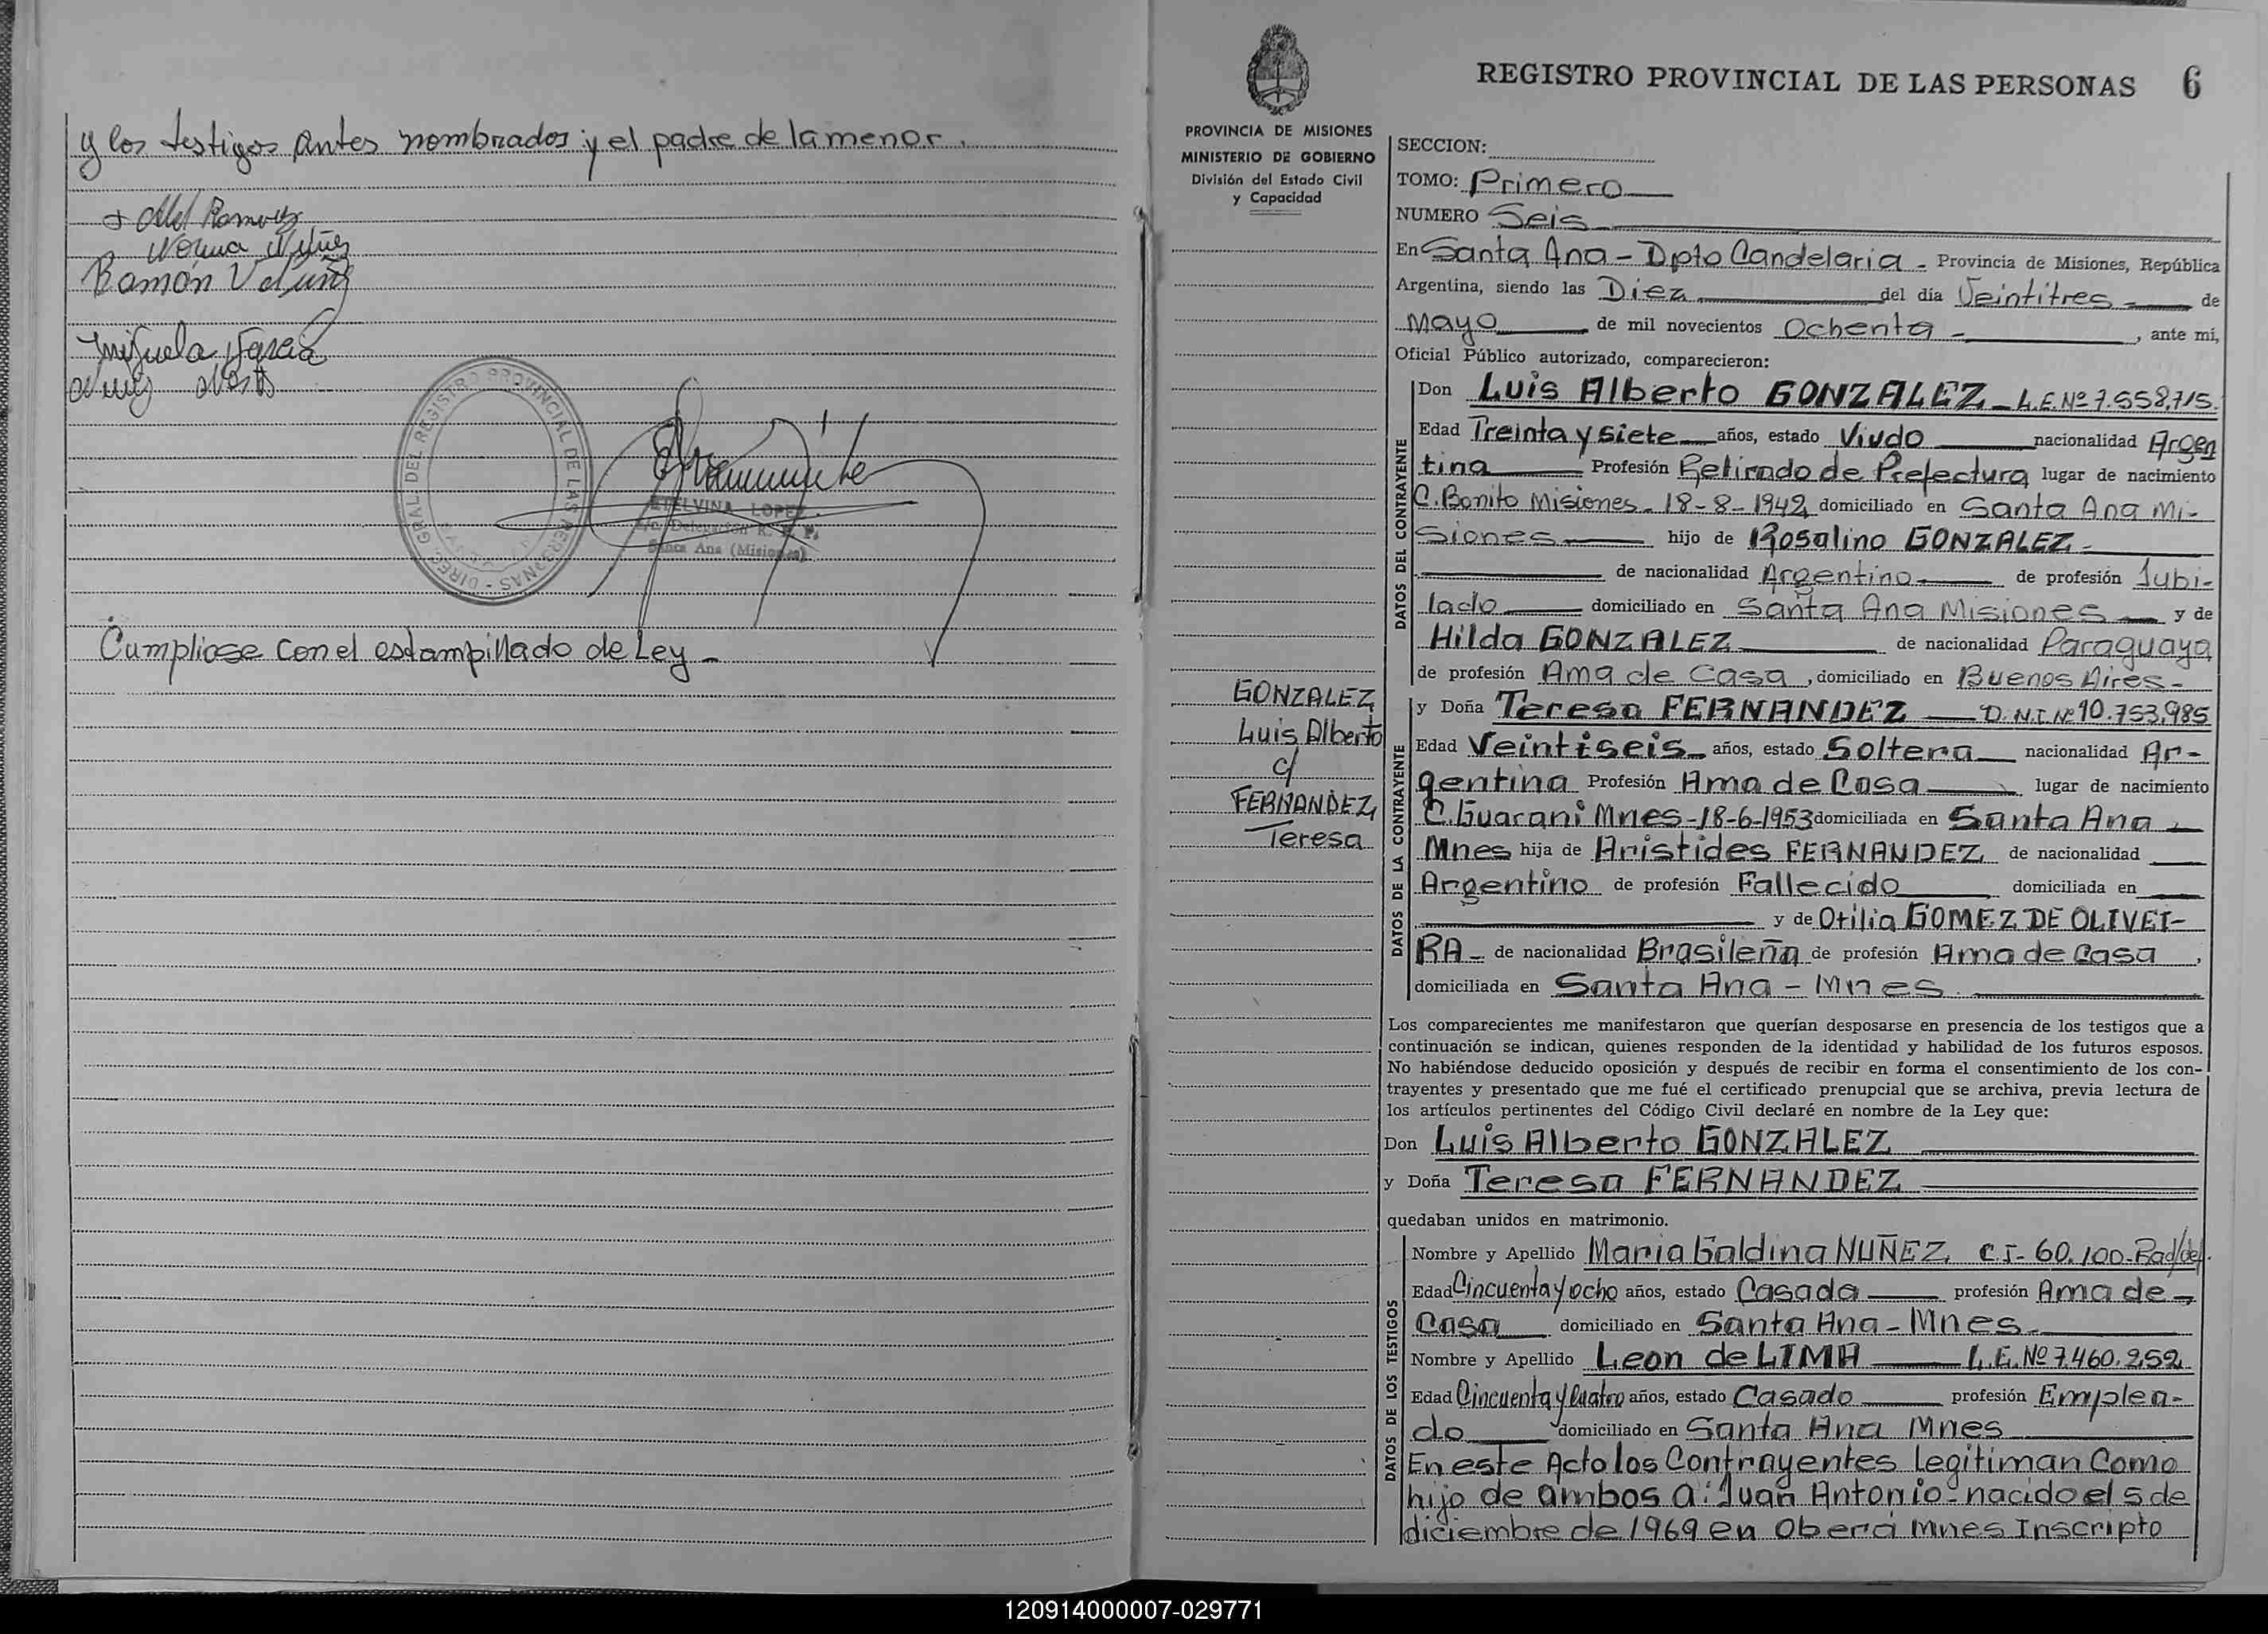 y los testigos antes nombrados y el padre de la menor.
Norma
Ramon V.
Cumpliose con el estampillado de Ley -
DIREC. GRAL DEL REGISTRO PROVINCIAL DE LAS PERSONAS
ETELVINA LOPEZ
Delegación R. P. P.
Santa Ana (Misiones)
REGISTRO PROVINCIAL DE LAS PERSONAS 6
PROVINCIA DE MISIONES
MINISTERIO DE GOBIERNO
División del Estado Civil
y Capacidad
GONZALEZ
Luis Alberto
c/
FERNANDEZ
Teresa
SECCION:
TOMO: Primero
NUMERO Seis
En Santa Ana - Dpto Candelaria - Provincia de Misiones, República
Argentina, siendo las Diez del día Veintitres de
Mayo de mil novecientos Ochenta - , ante mí,
Oficial Público autorizado, comparecieron:
DATOS DEL CONTRAYENTE
Don Luis Alberto GONZALEZ - L.E. Nº 7.558.715.
Edad Treinta y siete años, estado Viudo nacionalidad Argen
tina Profesión Retirado de Prefectura lugar de nacimiento
C. Bonito Misiones - 18-8-1942 domiciliado en Santa Ana Mi-
siones hijo de Rosalino GONZALEZ -
de nacionalidad Argentino de profesión Jubi-
lado domiciliado en Santa Ana Misiones y de
Hilda GONZALEZ de nacionalidad Paraguaya
de profesión Ama de Casa , domiciliado en Buenos Aires -
DATOS DE LA CONTRAYENTE
y Doña Teresa FERNANDEZ D.N.I. Nº 10.753.985
Edad Veintiseis años, estado Soltera nacionalidad Ar-
gentina Profesión Ama de Casa lugar de nacimiento
C. Guarani Mnes - 18-6-1953 domiciliada en Santa Ana
Mnes hija de Aristides FERNANDEZ de nacionalidad
Argentino de profesión Fallecido domiciliada en
y de Otilia GOMEZ DE OLIVEI-
RA - de nacionalidad Brasileña de profesión Ama de Casa ,
domiciliada en Santa Ana - Mnes
Los comparecientes me manifestaron que querían desposarse en presencia de los testigos que a
continuación se indican, quienes responden de la identidad y habilidad de los futuros esposos.
No habiéndose deducido oposición y después de recibir en forma el consentimiento de los con-
trayentes y presentado que me fué el certificado prenupcial que se archiva, previa lectura de
los artículos pertinentes del Código Civil declaré en nombre de la Ley que:
Don Luis Alberto GONZALEZ
y Doña Teresa FERNANDEZ
quedaban unidos en matrimonio.
DATOS DE LOS TESTIGOS
Nombre y Apellido Maria Galdina NUÑEZ C.I - 60.100 -
Edad Cincuenta y ocho años, estado Casada profesión Ama de
Casa domiciliado en Santa Ana - Mnes -
Nombre y Apellido Leon de LIMA L.E. Nº 7.460.252
Edad Cincuenta y Cuatro años, estado Casado profesión Emplea-
do domiciliado en Santa Ana Mnes
En este Acto los Contrayentes legitiman Como
hijo de ambos a: Juan Antonio - nacido el 5 de
diciembre de 1969 en Oberá Mnes Inscripto
120914000007-029771